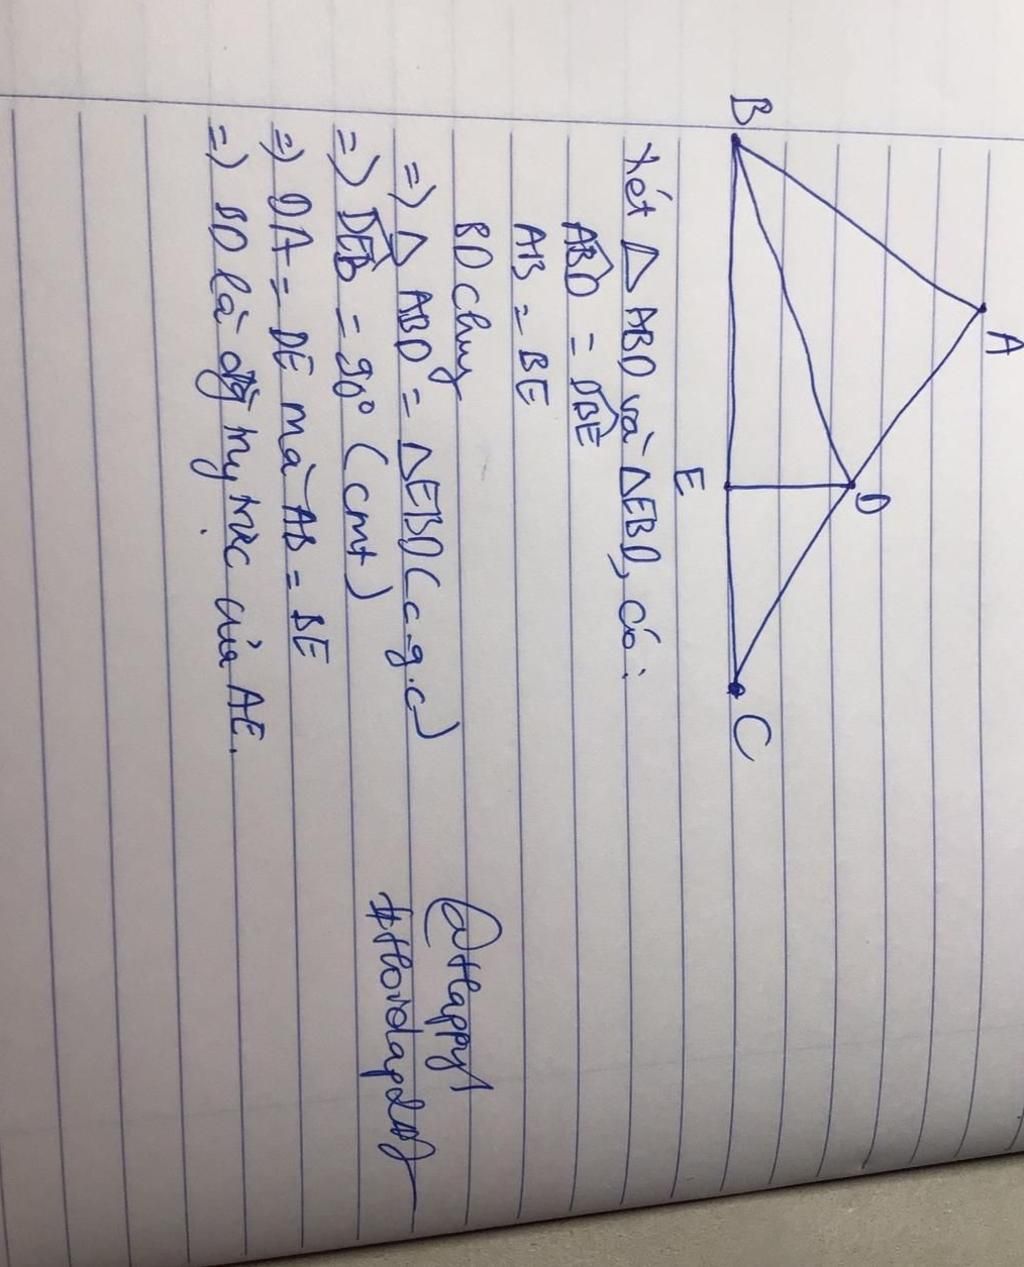 A
B
D
E
C
Xét △ ABD và △EBD, có:
ABD = DBE
AB = BE
BD chug
=) △ ABD = △EBD (c-g.c)
=) DEB = 90° (cmt)
=) DA = DE mà AB = BE
=) BD là đg trug trực của AE.
@Happy1